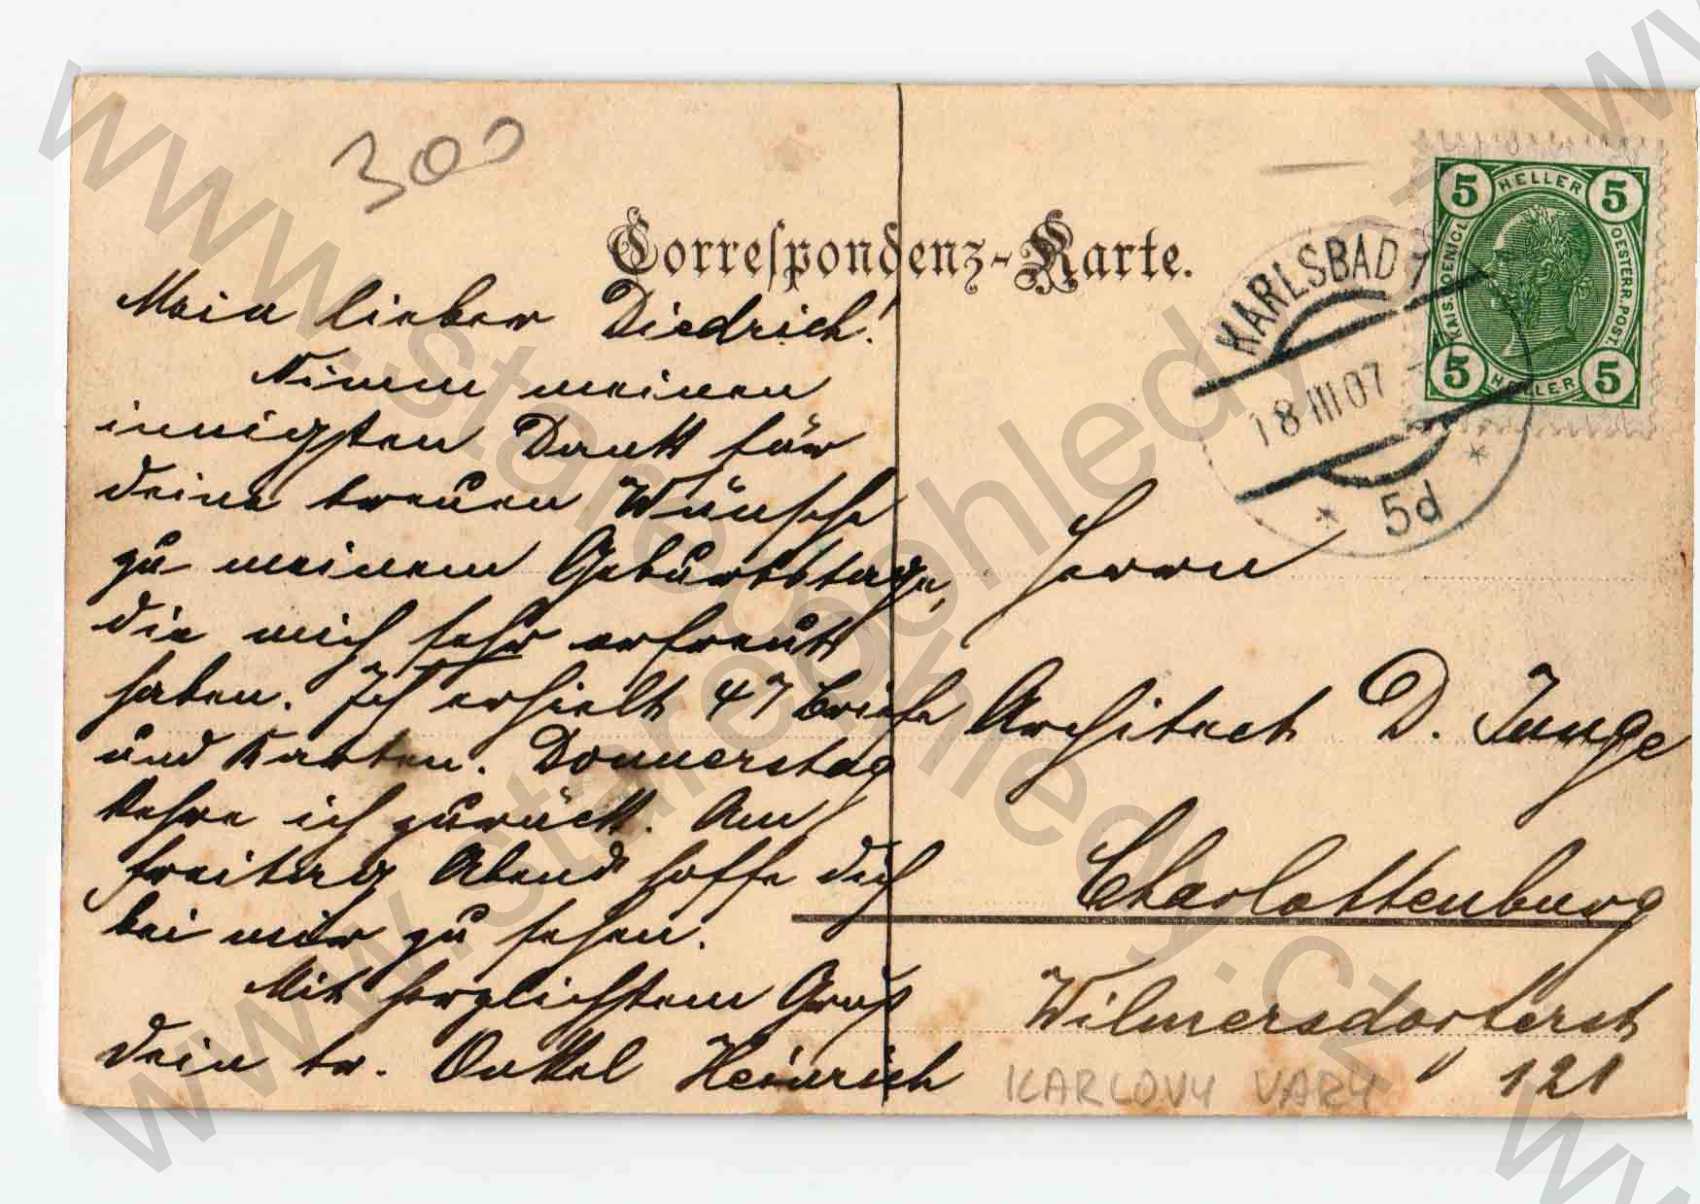 300
Correspondenz-Karte.
Mein lieber Diedrich!
Nimm meinen
innigsten Dank für
deine treuen Wünsche
zu meinem Geburtstage,
die mich sehr erfreut
haben. Ich erhielt 47 Briefe
und Karten. Donnerstag
kehre ich zurück. Am
Freitag Abend hoffe dich
bei mir zu sehen.
Mit herzlichstem Gruß
dein tr. Onkel Heinrich
5 HELLER 5
KAIS. KOENIGL. OESTERR. POST.
5 HELLER 5
KARLSBAD 1
18 III 07
* 5d *
Herrn
Architect D. Junge
Charlottenburg
Wilmersdorferst
121
KARLOVY VARY
www.starepohledy.cz
www.starepohledy.cz